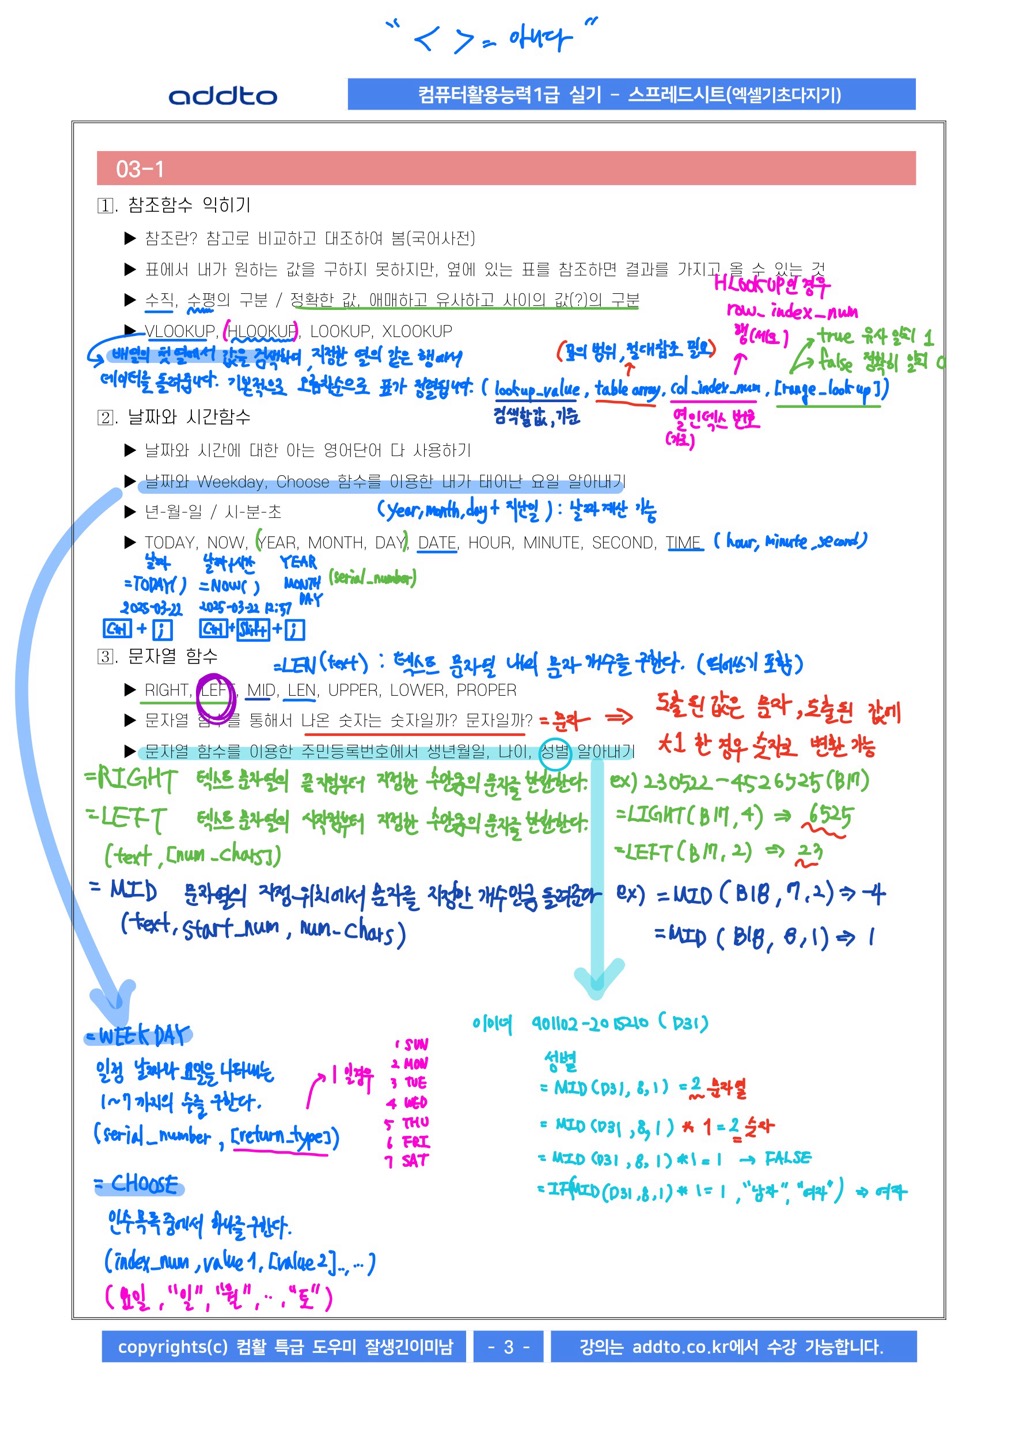 " < > = 아니다 "
addto
컴퓨터활용능력1급 실기 - 스프레드시트(엑셀기초다지기)
03-1
1. 참조함수 익히기
▶ 참조란? 참고로 비교하고 대조하여 봄(국어사전)
▶ 표에서 내가 원하는 값을 구하지 못하지만, 옆에 있는 표를 참조하면 결과를 가지고 올 수 있는 것
▶ 수직, 수평의 구분 / 정확한 값, 애매하고 유사하고 사이의 값(?)의 구분
HLOOKUP인 경우
row_index_num
행(세로)
▶ VLOOKUP, (HLOOKUP), LOOKUP, XLOOKUP
true 유사 일치 1
false 정확히 일치 0
배열의 첫 열에서 값을 검색하여, 지정한 열의 같은 행에서
(표의 범위, 절대참조 필요)
데이터를 돌려줍니다. 기본적으로 오름차순으로 표가 정렬됩니다. (lookup_value, table array, col_index_num, [range_lookup])
검색할값, 기준
열 인덱스 번호
(가로)
2. 날짜와 시간함수
▶ 날짜와 시간에 대한 아는 영어단어 다 사용하기
▶ 날짜와 Weekday, Choose 함수를 이용한 내가 태어난 요일 알아내기
▶ 년-월-일 / 시-분-초
(year, month, day + 지난일) : 날짜 계산 가능
▶ TODAY, NOW, (YEAR, MONTH, DAY), DATE, HOUR, MINUTE, SECOND, TIME (hour, minute, second)
날짜 날짜+시간 YEAR
=TODAY() =NOW() MONTH (serial_number)
DAY
2025-03-22 2025-03-22 12:57
Ctrl + ; Ctrl + Shift + ;
3. 문자열 함수
=LEN(text) : 텍스트 문자열 내의 문자 개수를 구한다. (띄어쓰기 포함)
▶ RIGHT, LEFT, MID, LEN, UPPER, LOWER, PROPER
▶ 문자열 함수를 통해서 나온 숫자는 숫자일까? 문자일까? = 문자 ⇒ 도출된 값은 문자, 도출된 값에
*1 한 경우 숫자로 변환 가능
▶ 문자열 함수를 이용한 주민등록번호에서 생년월일, 나이, 성별 알아내기
=RIGHT 텍스트 문자열의 끝 지점부터 지정한 수만큼의 문자를 반환한다. ex) 230522-4526525(B17)
=LEFT 텍스트 문자열의 시작점부터 지정한 수만큼의 문자를 반환한다. =LIGHT(B17, 4) ⇒ 6525
(text, [num_chars]) =LEFT(B17, 2) ⇒ 23
= MID 문자열의 지정 위치에서 문자를 지정한 개수만큼 돌려준다 ex) =MID(B18, 7, 2) ⇒ -4
(text, start_num, num_chars) =MID(B18, 8, 1) ⇒ 1
이미녀 901102-2015210 (D31)
=WEEKDAY
일정 날짜나 요일을 나타내는
1~7 까지의 수를 구한다.
(serial_number, [return_type])
1 일경우
1 SUN
2 MON
3 TUE
4 WED
5 THU
6 FRI
7 SAT
성별
= MID(D31, 8, 1) = 2 문자열
= MID(D31, 8, 1) * 1 = 2 숫자
= MID(D31, 8, 1) *1 = 1 → FALSE
= IF(MID(D31,8,1) * 1 = 1, "남자", "여자") ⇒ 여자
= CHOOSE
인수목록 중에서 하나를 구한다.
(index_num, value1, [value2]..,...)
(요일, "일", "월", .., "토")
copyrights(c) 컴활 특급 도우미 잘생긴이미남
- 3 -
강의는 addto.co.kr에서 수강 가능합니다.